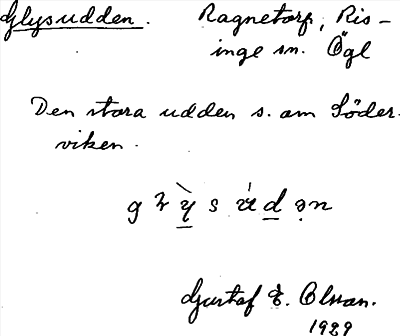 Glysudden. Ragnetorp, Ris-
inge sn. Ögl
Den stora udden s. om Söder-
viken.
Gustaf E. Olsson.
1929